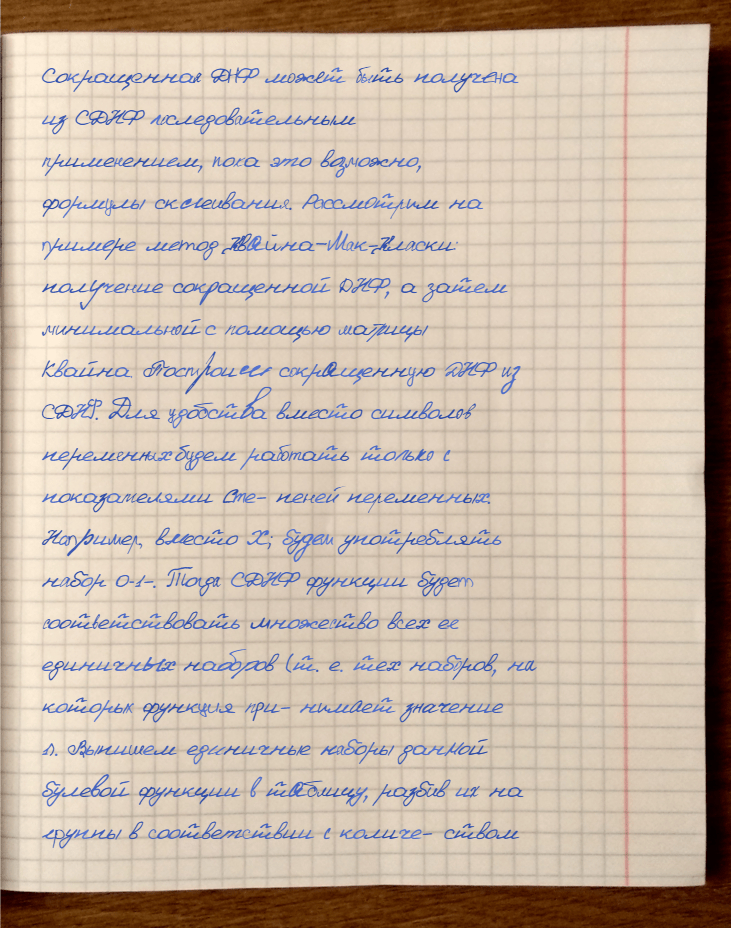 Сокращенная ДНФ может быть получена
из СДНФ последовательным
применением, пока это возможно,
формулы склеивания. Рассмотрим на
примере метод Квайна-Мак-Класки:
получение сокращенной ДНФ, а затем
минимальной с помощью матрицы
Квайна. Построим сокращенную ДНФ из
СДНФ. Для удобства вместо символов
переменных будем работать только с
показателями сте- пеней переменных.
Например, вместо X; будем употреблять
набор 0-1-. Тогда СДНФ функции будет
соответствовать множество всех ее
единичных наборов (т. е. тех наборов, на
которых функция при- нимает значение
1). Выпишем единичные наборы данной
булевой функции в таблицу, разбив их на
группы в соответствии с количе- ством